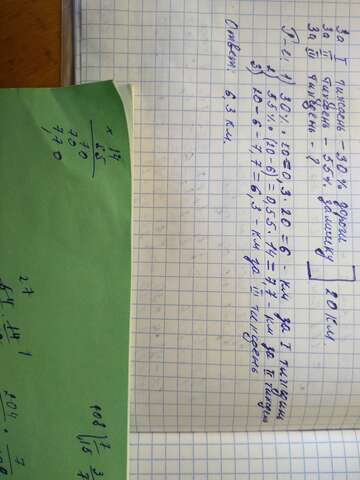 За I тиждень - 30% дороги
За II тиждень - 55% залишку
За III тиждень - ?
20 км
Р-і: 1) 30% · 20 = 0,3 · 20 = 6 - км за I тиждень
2) 55% · (20-6) = 0,55 · 14 = 7,7 - км за II тиждень
3) 20 - 6 - 7,7 = 6,3 - км за III тиждень
Ответ: 6,3 км.
× 14
55
70
70
7,70
27